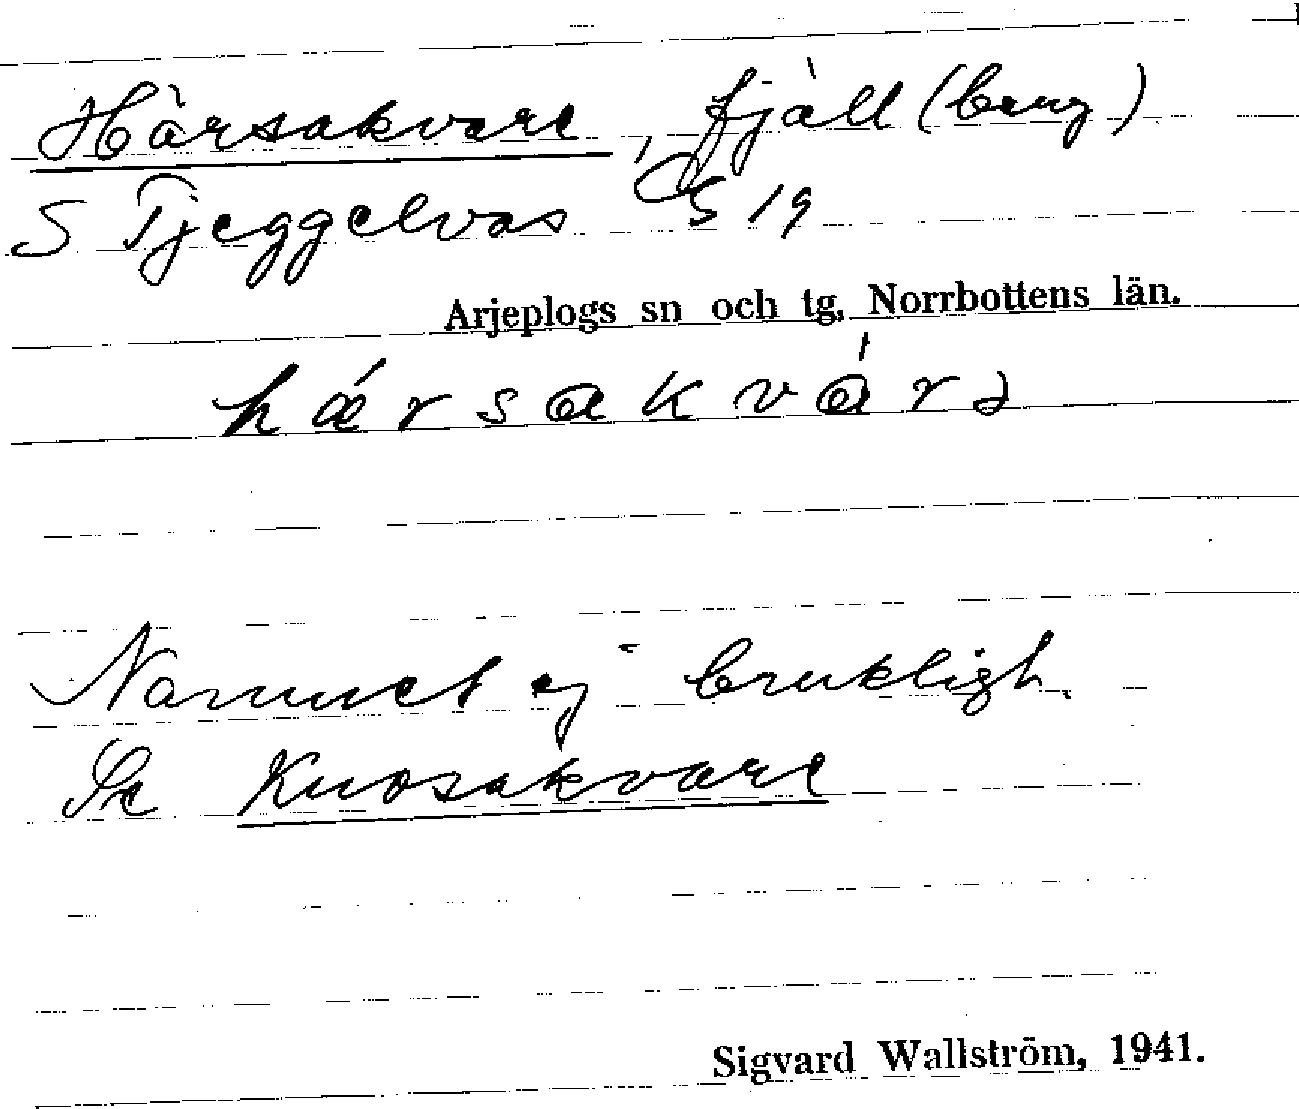 Hårsakvare, fjäll (berg)
S Tjeggelvas C5 19
Arjeplogs sn och tg, Norrbottens län.
hársakvárə
Namnet ej brukligt.
Se Kuosakvare
Sigvard Wallström, 1941.